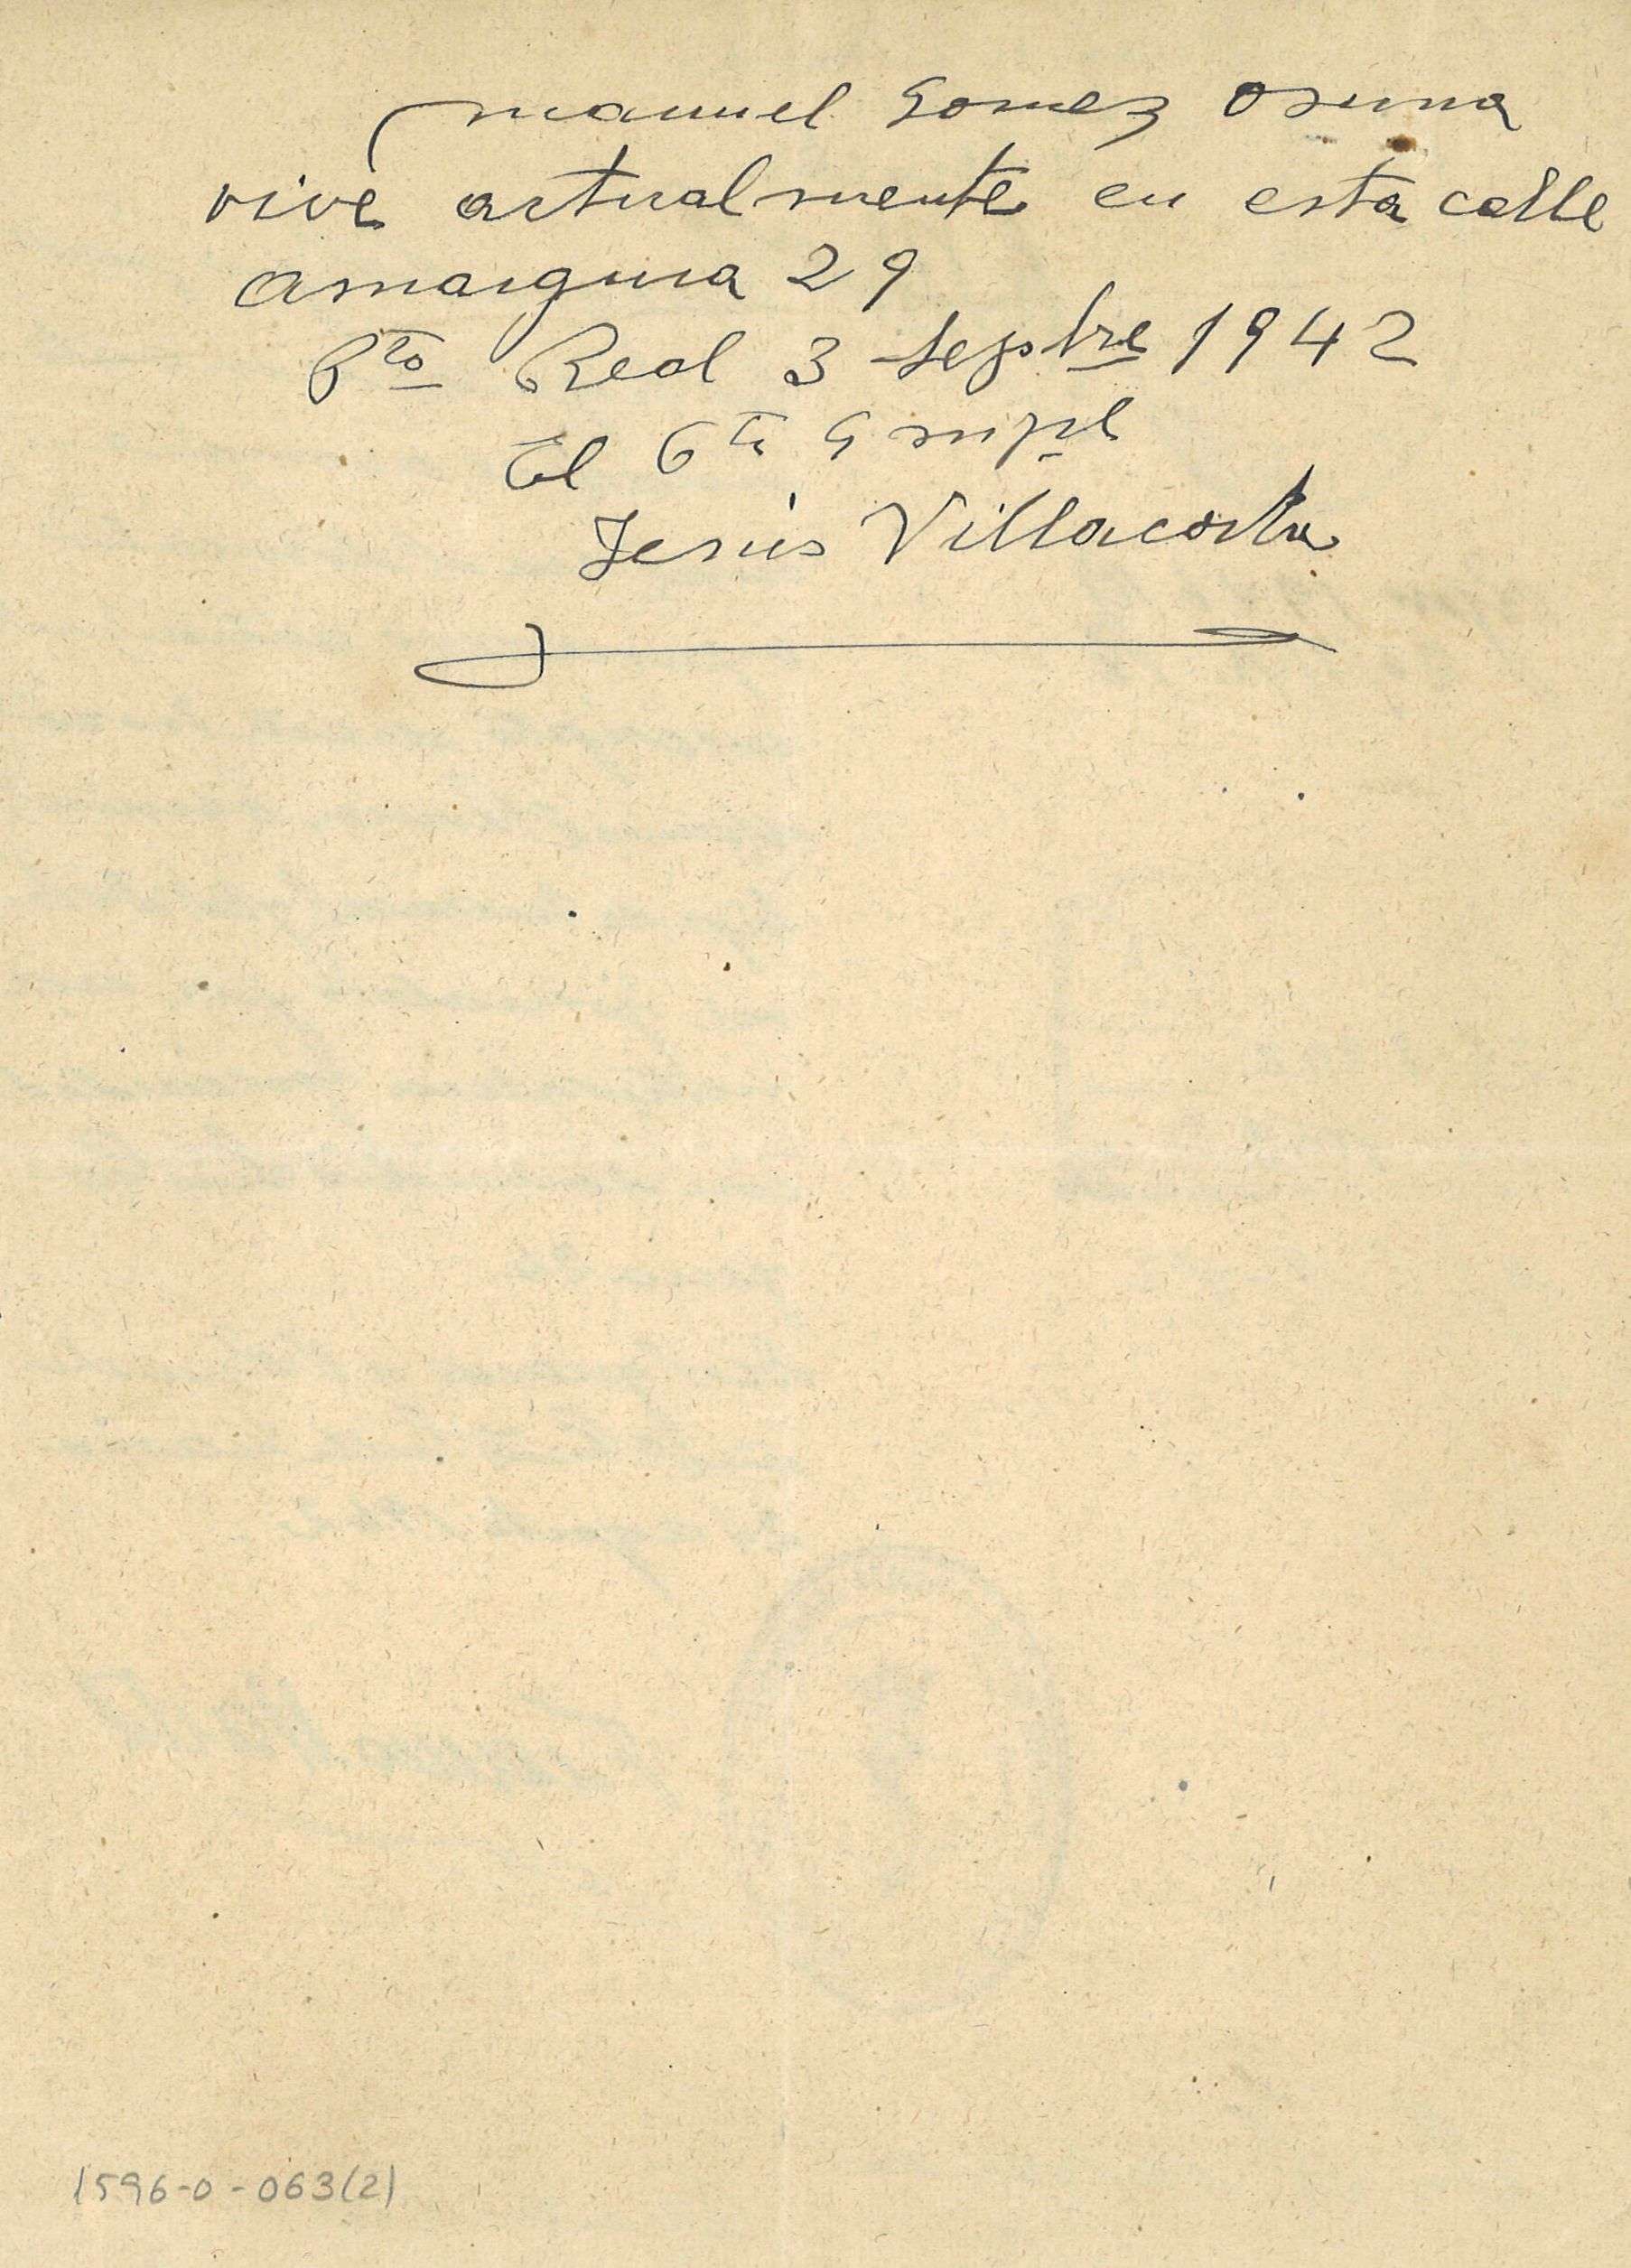 Manuel Gomez Osuna
vive actualmente en esta calle
Amargura 29
Pto Real 3 Septbre 1942
El Gte G mpl
Jesús Villacorta
1596-0-063(2)